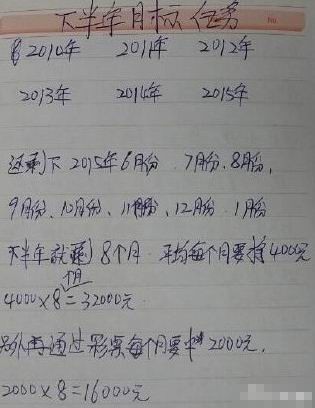 下半年目标任务
No.
2010年 2011年 2012年
2013年 2014年 2015年
还剩下 2015年6月份、7月份、8月份、
9月份、10月份、11月份、12月份、1月份
下半年就剩8个月 平均每个月要挣4000元
4000×8=32000元
另外再通过彩票每个月要中2000元,
2000×8=16000元